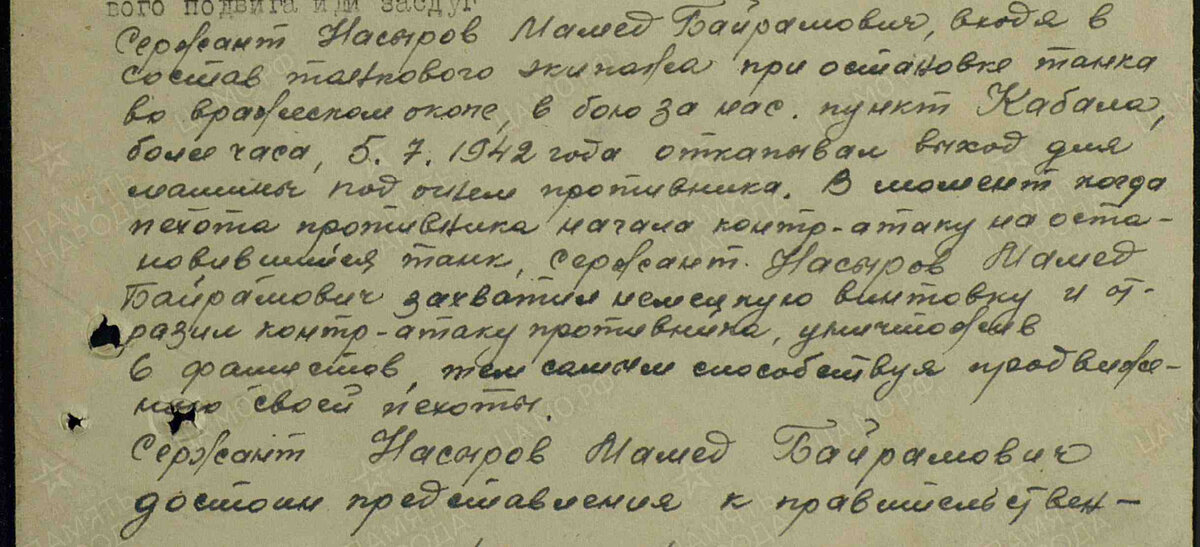 вого подвига или заслуг
Сержант Насыров Мамед Байрамович, входя в
состав танкового экипажа при остановке танка
во вражеском окопе, в бою за нас. пункт Кабала,
более часа, 5.7.1942 года откапывал выход для
машины под огнем противника. В момент когда
пехота противника начала контр-атаку на оста-
новившийся танк, сержант Насыров Мамед
Байрамович захватил немецкую винтовку и от-
разил контр-атаку противника, уничтожив
6 фашистов, тем самым способствуя продвиже-
нию своей пехоты.
Сержант Насыров Мамед Байрамович
достоин представления к правительствен-